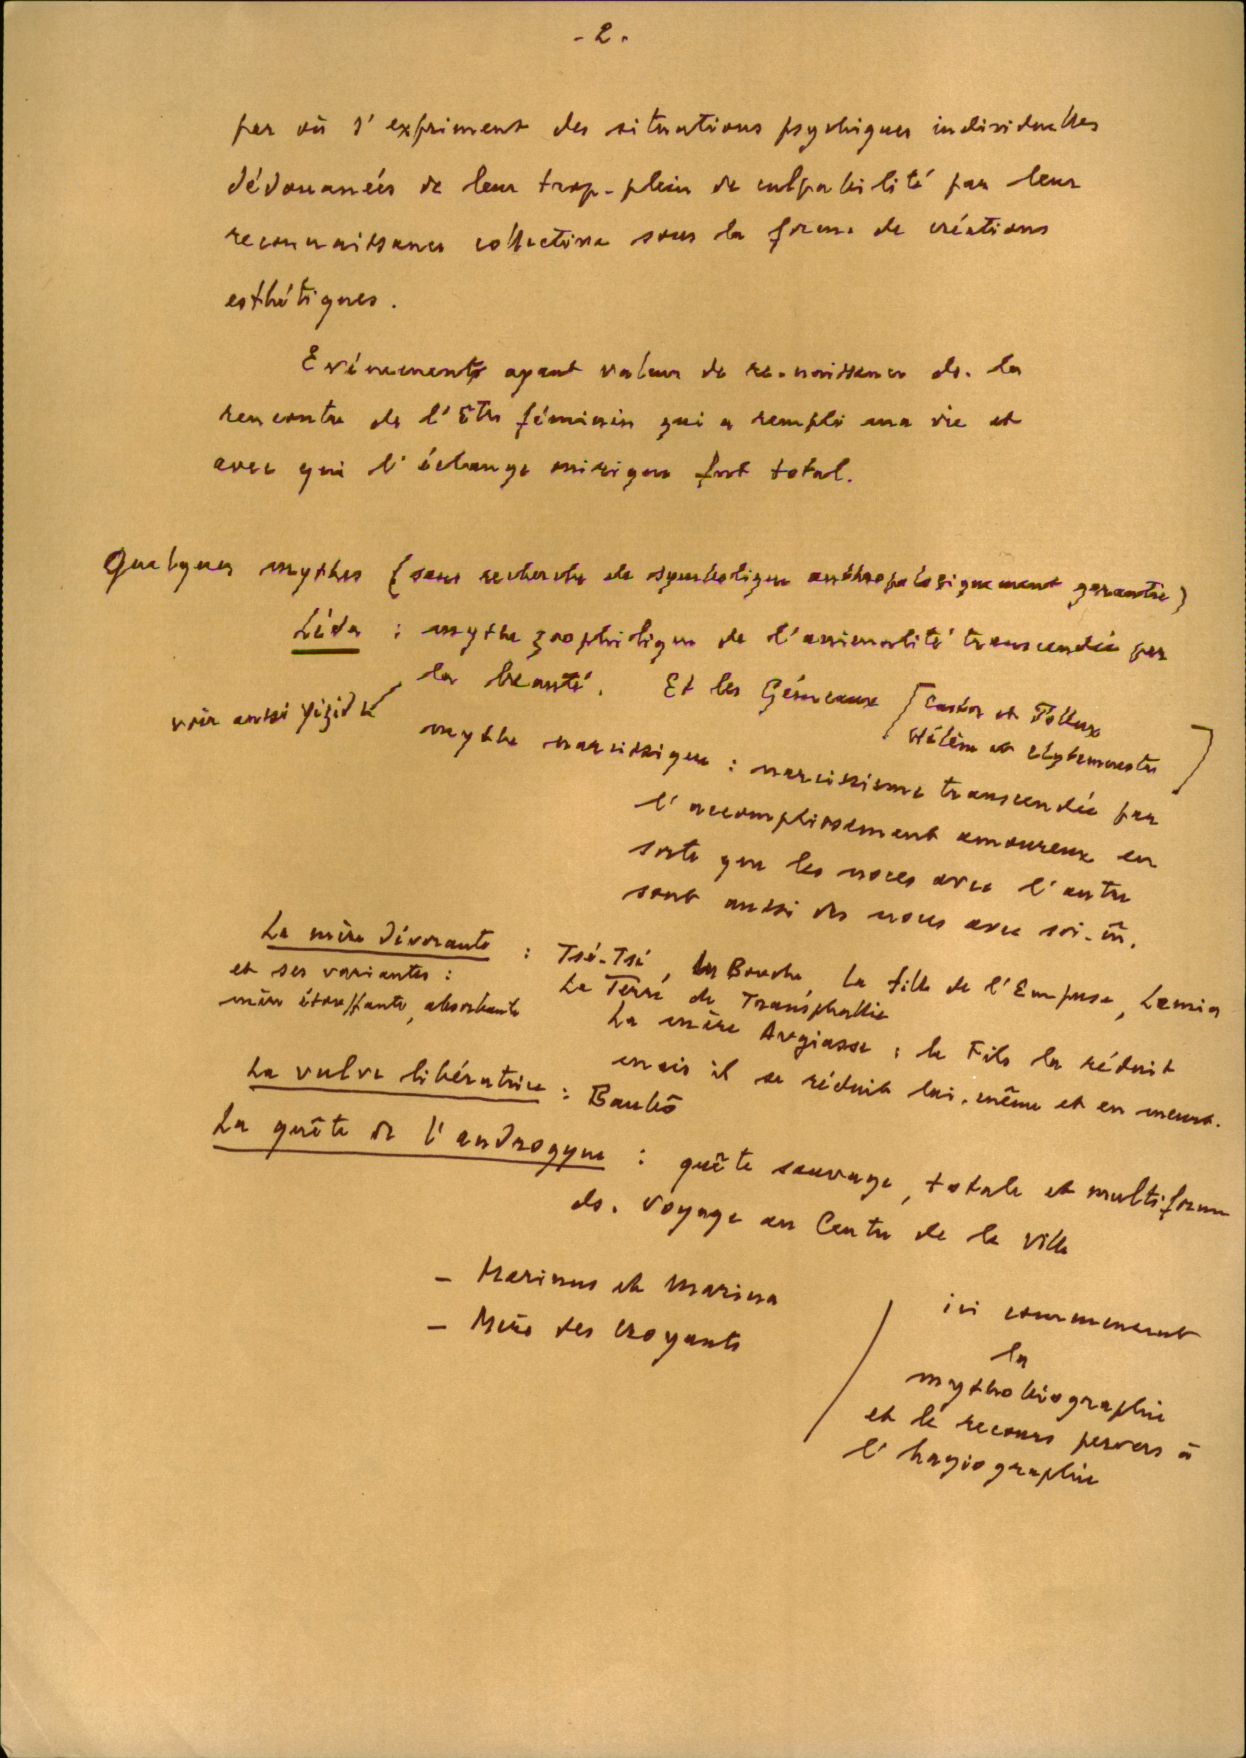 - 2 -
par où s'expriment des situations psychiques individuelles
dédouanées de leur trop-plein de culpabilité par leur
reconnaissance collective sous la forme de créations
esthétiques.
Evénements ayant valeur de re-naissance ds. la
rencontre de l'Etre féminin qui a rempli ma vie et
avec qui l'échange onirique fut total.
Quelques mythes (sans recherche de symbolique anthropologiquement garantie)
Léda : mythe zoophilique de l'animalité transcendée par
la beauté. Et les Gémeaux [Castor et Pollux
Hélène et Clytemnestre]
voir aussi
mythe narcissique : narcissisme transcendé par
l'accomplissement amoureux en
sorte que les noces avec l'autre
sont aussi des noces avec soi-m̃.
La mère dévorante : Tsé-Tsé, la Bouche, La fille de l'Empuse, Lamia
et ses variantes :
mère étouffante, absorbante
La Terre de Transphallie
La mère Augiasse : le Fils la réduit
mais il se réduit lui-même et en meurt.
La vulve libératrice : Baubô
La quête de l'androgyne : quête sauvage, totale et multiforme
ds. Voyage au Centre de la Ville
- Marinus et Marina
- Mère des Croyants
ici commencent
la
mythobiographie
et le recours pervers à
l'hagiographie